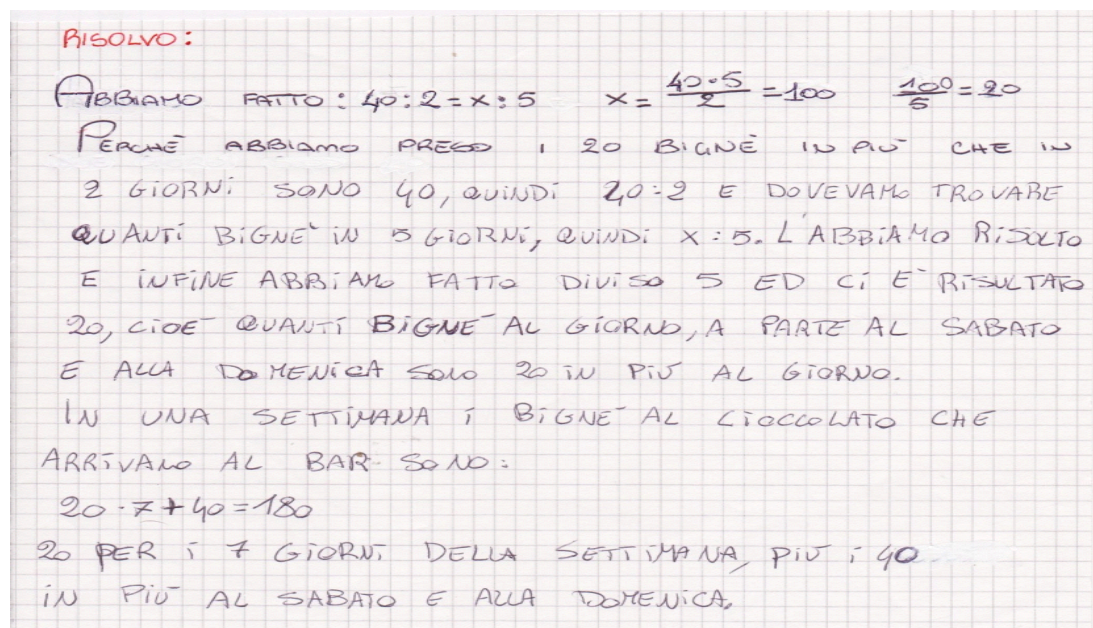 RISOLVO:
ABBIAMO FATTO: 40:2=x:5 x= 40·5/2 =100 100/5=20
PERCHÈ ABBIAMO PRESO I 20 BIGNÈ IN PIÙ CHE IN
2 GIORNI SONO 40, QUINDI 40:2 E DOVEVAMO TROVARE
QUANTI BIGNE' IN 5 GIORNI, QUINDI X:5. L'ABBIAMO RISOLTO
E INFINE ABBIAMO FATTO DIVISO 5 ED CI E' RISULTATO
20, CIOE' QUANTI BIGNE' AL GIORNO, A PARTE AL SABATO
E ALLA DOMENICA SOLO 20 IN PIÙ AL GIORNO.
IN UNA SETTIMANA I BIGNE' AL CIOCCOLATO CHE
ARRIVANO AL BAR SONO:
20·7+40=180
20 PER I 7 GIORNI DELLA SETTIMANA, PIÙ I 40
IN PIÙ AL SABATO E ALLA DOMENICA.